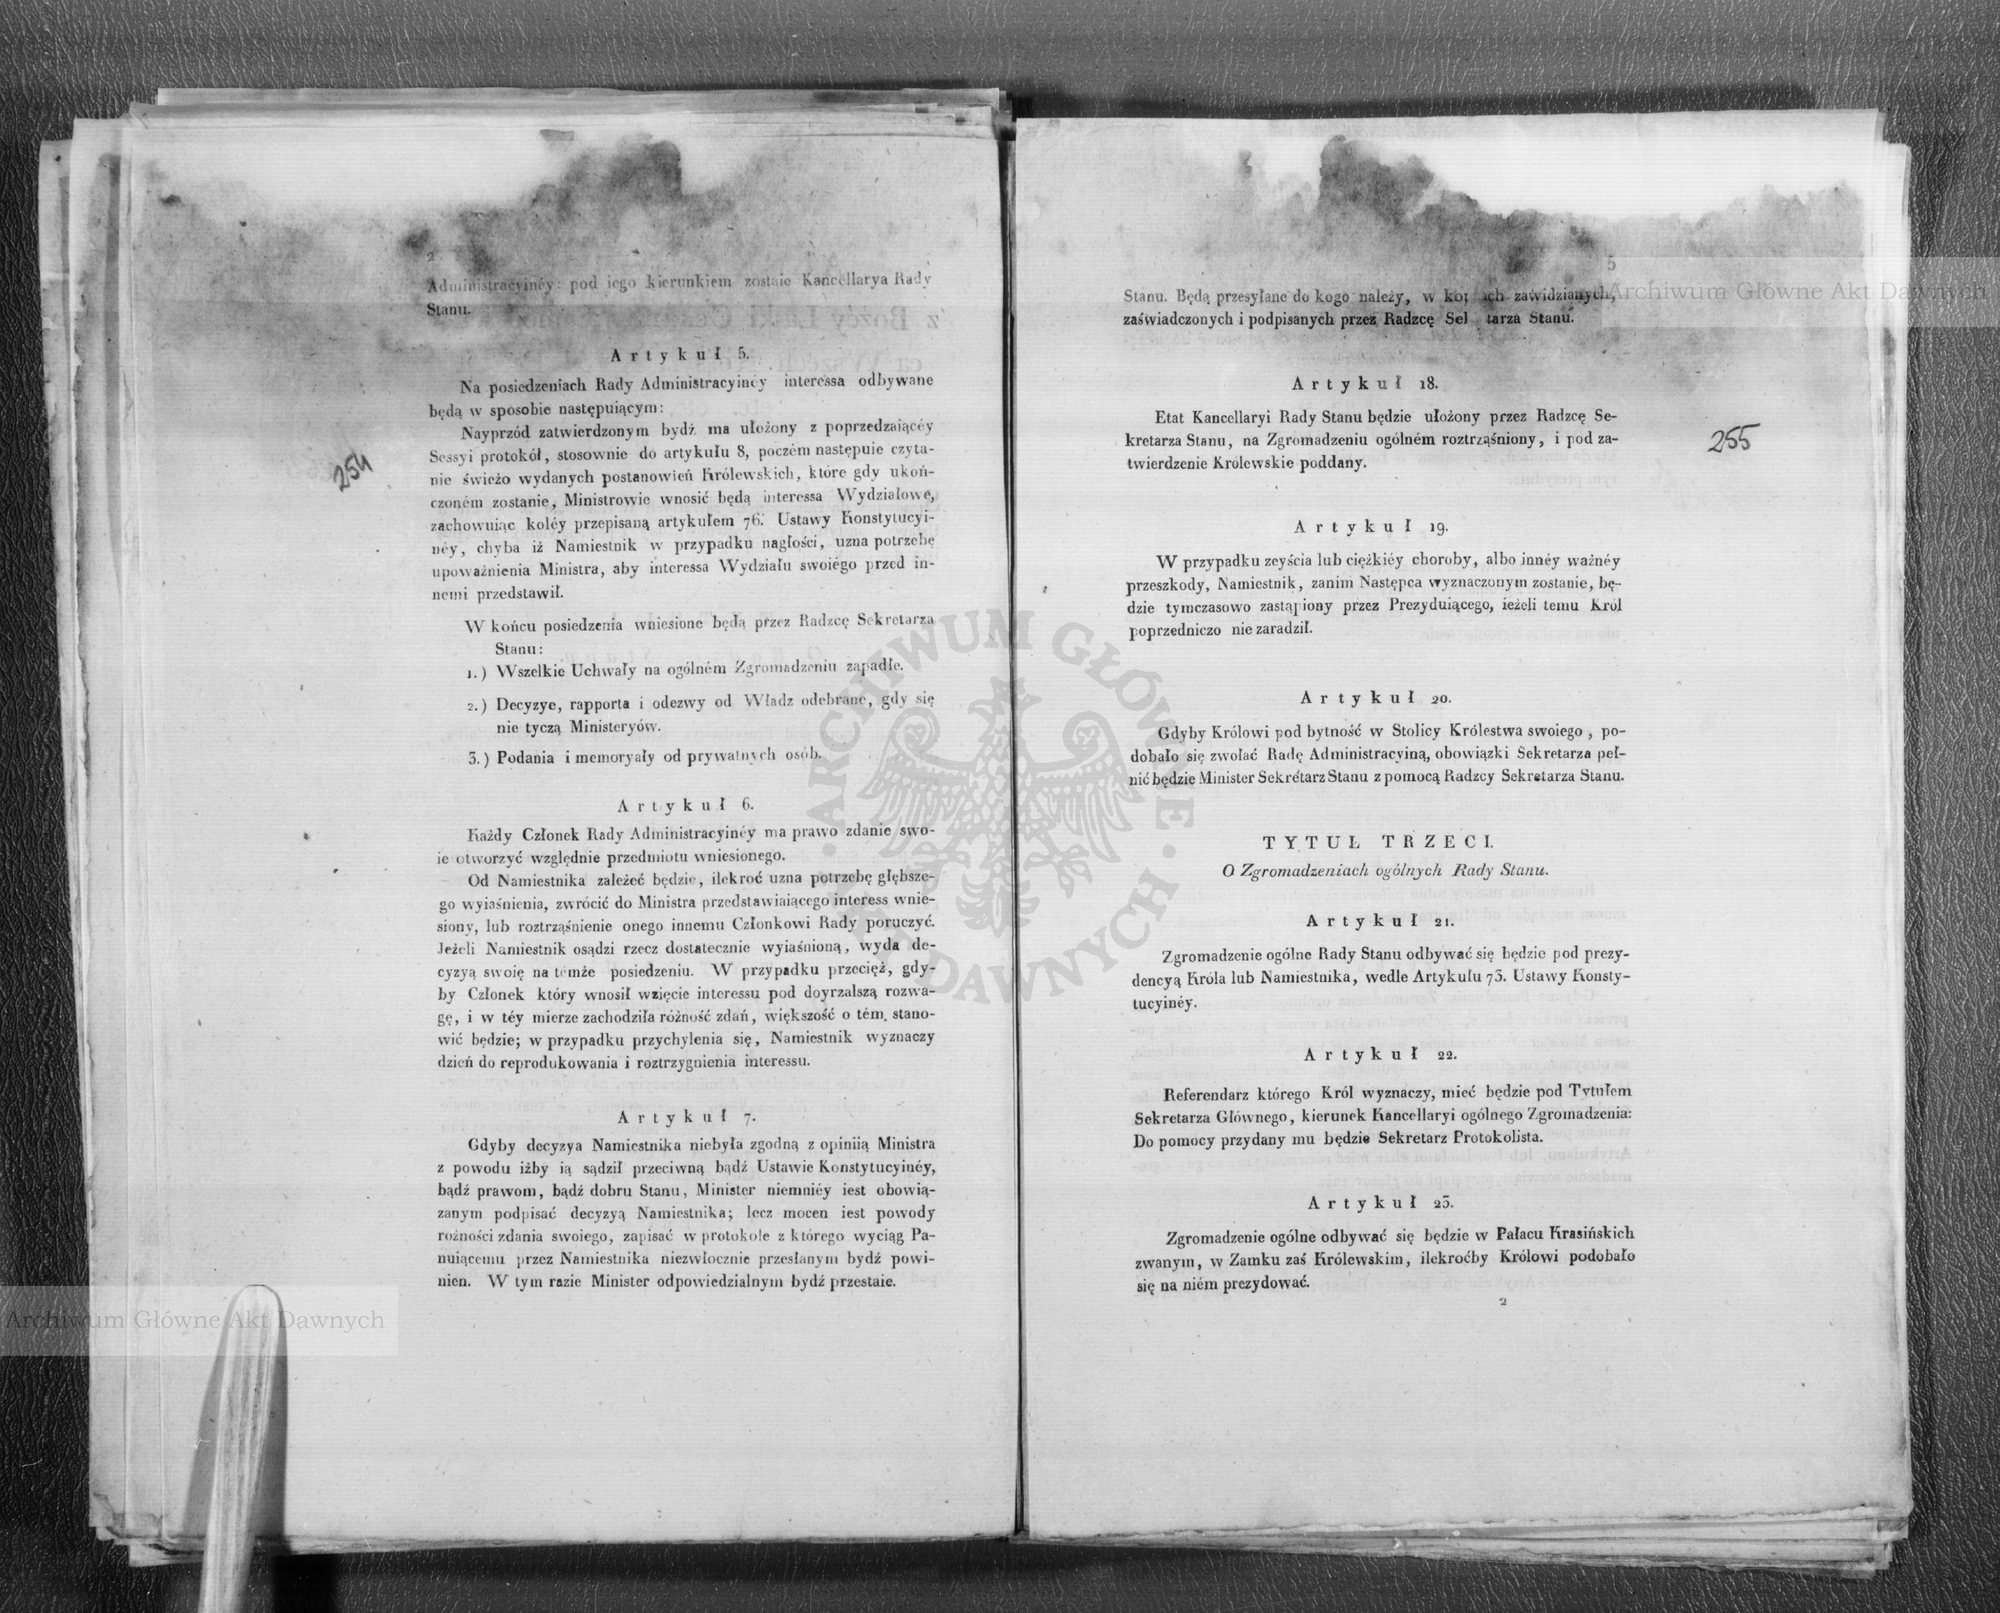 2
Administracyinéy: pod iego kierunkiem zostaie Kancellarya Rady
Stanu.
Artykuł 5.
Na posiedzeniach Rady Administracyinéy interessa odbywane
będą w sposobie następuiącym:
Nayprzód zatwierdzonym bydź ma ułożony z poprzedzaiącéy
Sessyi protokół, stosownie do artykułu 8, poczém następuie czyta-
nie świeżo wydanych postanowień Królewskich, które gdy ukoń-
czoném zostanie, Ministrowie wnosić będą interessa Wydziałowe,
zachowuiąc koléy przepisaną artykułem 76. Ustawy Konstytucyi-
néy, chyba iż Namiestnik w przypadku nagłości, uzna potrzebę
upoważnienia Ministra, aby interessa Wydziału swoiégo przed in-
nemi przedstawił.
W końcu posiedzenia wniesione będą przez Radzcę Sekretarza
Stanu:
1.) Wszelkie Uchwały na ogólném Zgromadzeniu zapadłe.
2.) Decyzye, rapporta i odezwy od Władz odebrane, gdy się
nie tyczą Ministeryów.
3.) Podania i memoryały od prywatnych osób.
Artykuł 6.
Każdy Członek Rady Administracyinéy ma prawo zdanie swo-
ie otworzyć względnie przedmiotu wniesionego.
Od Namiestnika zależeć będzie, ilekroć uzna potrzebę głębsze-
go wyiaśnienia, zwrócić do Ministra przedstawiaiącego interess wnie-
siony, lub roztrząśnienie onego innemu Członkowi Rady poruczyć.
Jeżeli Namiestnik osądzi rzecz dostatecznie wyiaśnioną, wyda de-
cyzyą swoię na témże posiedzeniu. W przypadku przecięż, gdy-
by Członek który wnosił wzięcie interessu pod doyrzalszą rozwa-
gę, i w téy mierze zachodziła różność zdań, większość o tém stano-
wić będzie; w przypadku przychylenia się, Namiestnik wyznaczy
dzień do reprodukowania i roztrzygnienia interessu.
Artykuł 7.
Gdyby decyzya Namiestnika niebyła zgodną z opiniią Ministra
z powodu iżby ią sądził przeciwną bądź Ustawie Konstytucyinéy,
bądź prawom, bądź dobru Stanu, Minister niemniéy iest obowią-
zanym podpisać decyzyą Namiestnika; lecz mocen iest powody
rożności zdania swoiego, zapisać w protokole z którego wyciąg Pa-
nuiącemu przez Namiestnika niezwłocznie przesłanym bydź powi-
nien. W tym razie Minister odpowiedzialnym bydź przestaie.
254
5
Stanu. Będą przesyłane do kogo należy, w zawidzianych,
zaświadczonych i podpisanych przez Radzcę Stanu.
Artykuł 18.
Etat Kancellaryi Rady Stanu będzie ułożony przez Radzcę Se-
kretarza Stanu, na Zgromadzeniu ogólném roztrząśniony, i pod za-
twierdzenie Królewskie poddany.
255
Artykuł 19.
W przypadku zeyścia lub ciężkiéy choroby, albo innéy ważnéy
przeszkody, Namiestnik, zanim Następca wyznaczonym zostanie, bę-
dzie tymczasowo zastąpiony przez Prezyduiącego, ieżeli temu Król
poprzedniczo nie zaradził.
Artykuł 20.
Gdyby Królowi pod bytność w Stolicy Królestwa swoiego, po-
dobało się zwołać Radę Administracyiną, obowiązki Sekretarza peł-
nić będzie Minister Sekretarz Stanu z pomocą Radzcy Sekretarza Stanu.
TYTUŁ TRZECI.
O Zgromadzeniach ogólnych Rady Stanu.
Artykuł 21.
Zgromadzenie ogólne Rady Stanu odbywać się będzie pod prezy-
dencyą Króla lub Namiestnika, wedle Artykułu 73. Ustawy Konsty-
tucyinéy.
Artykuł 22.
Referendarz którego Król wyznaczy, mieć będzie pod Tytułem
Sekretarza Głównego, kierunek Kancellaryi ogólnego Zgromadzenia:
Do pomocy przydany mu będzie Sekretarz Protokolista.
Artykuł 23.
Zgromadzenie ogólne odbywać się będzie w Pałacu Krasińskich
zwanym, w Zamku zaś Królewskim, ilekroćby Królowi podobało
się na niém prezydować.
2
Archiwum Główne Akt Dawnych
Archiwum Główne Akt Dawnych
ARCHIWUM GŁÓWNE AKT DAWNYCH